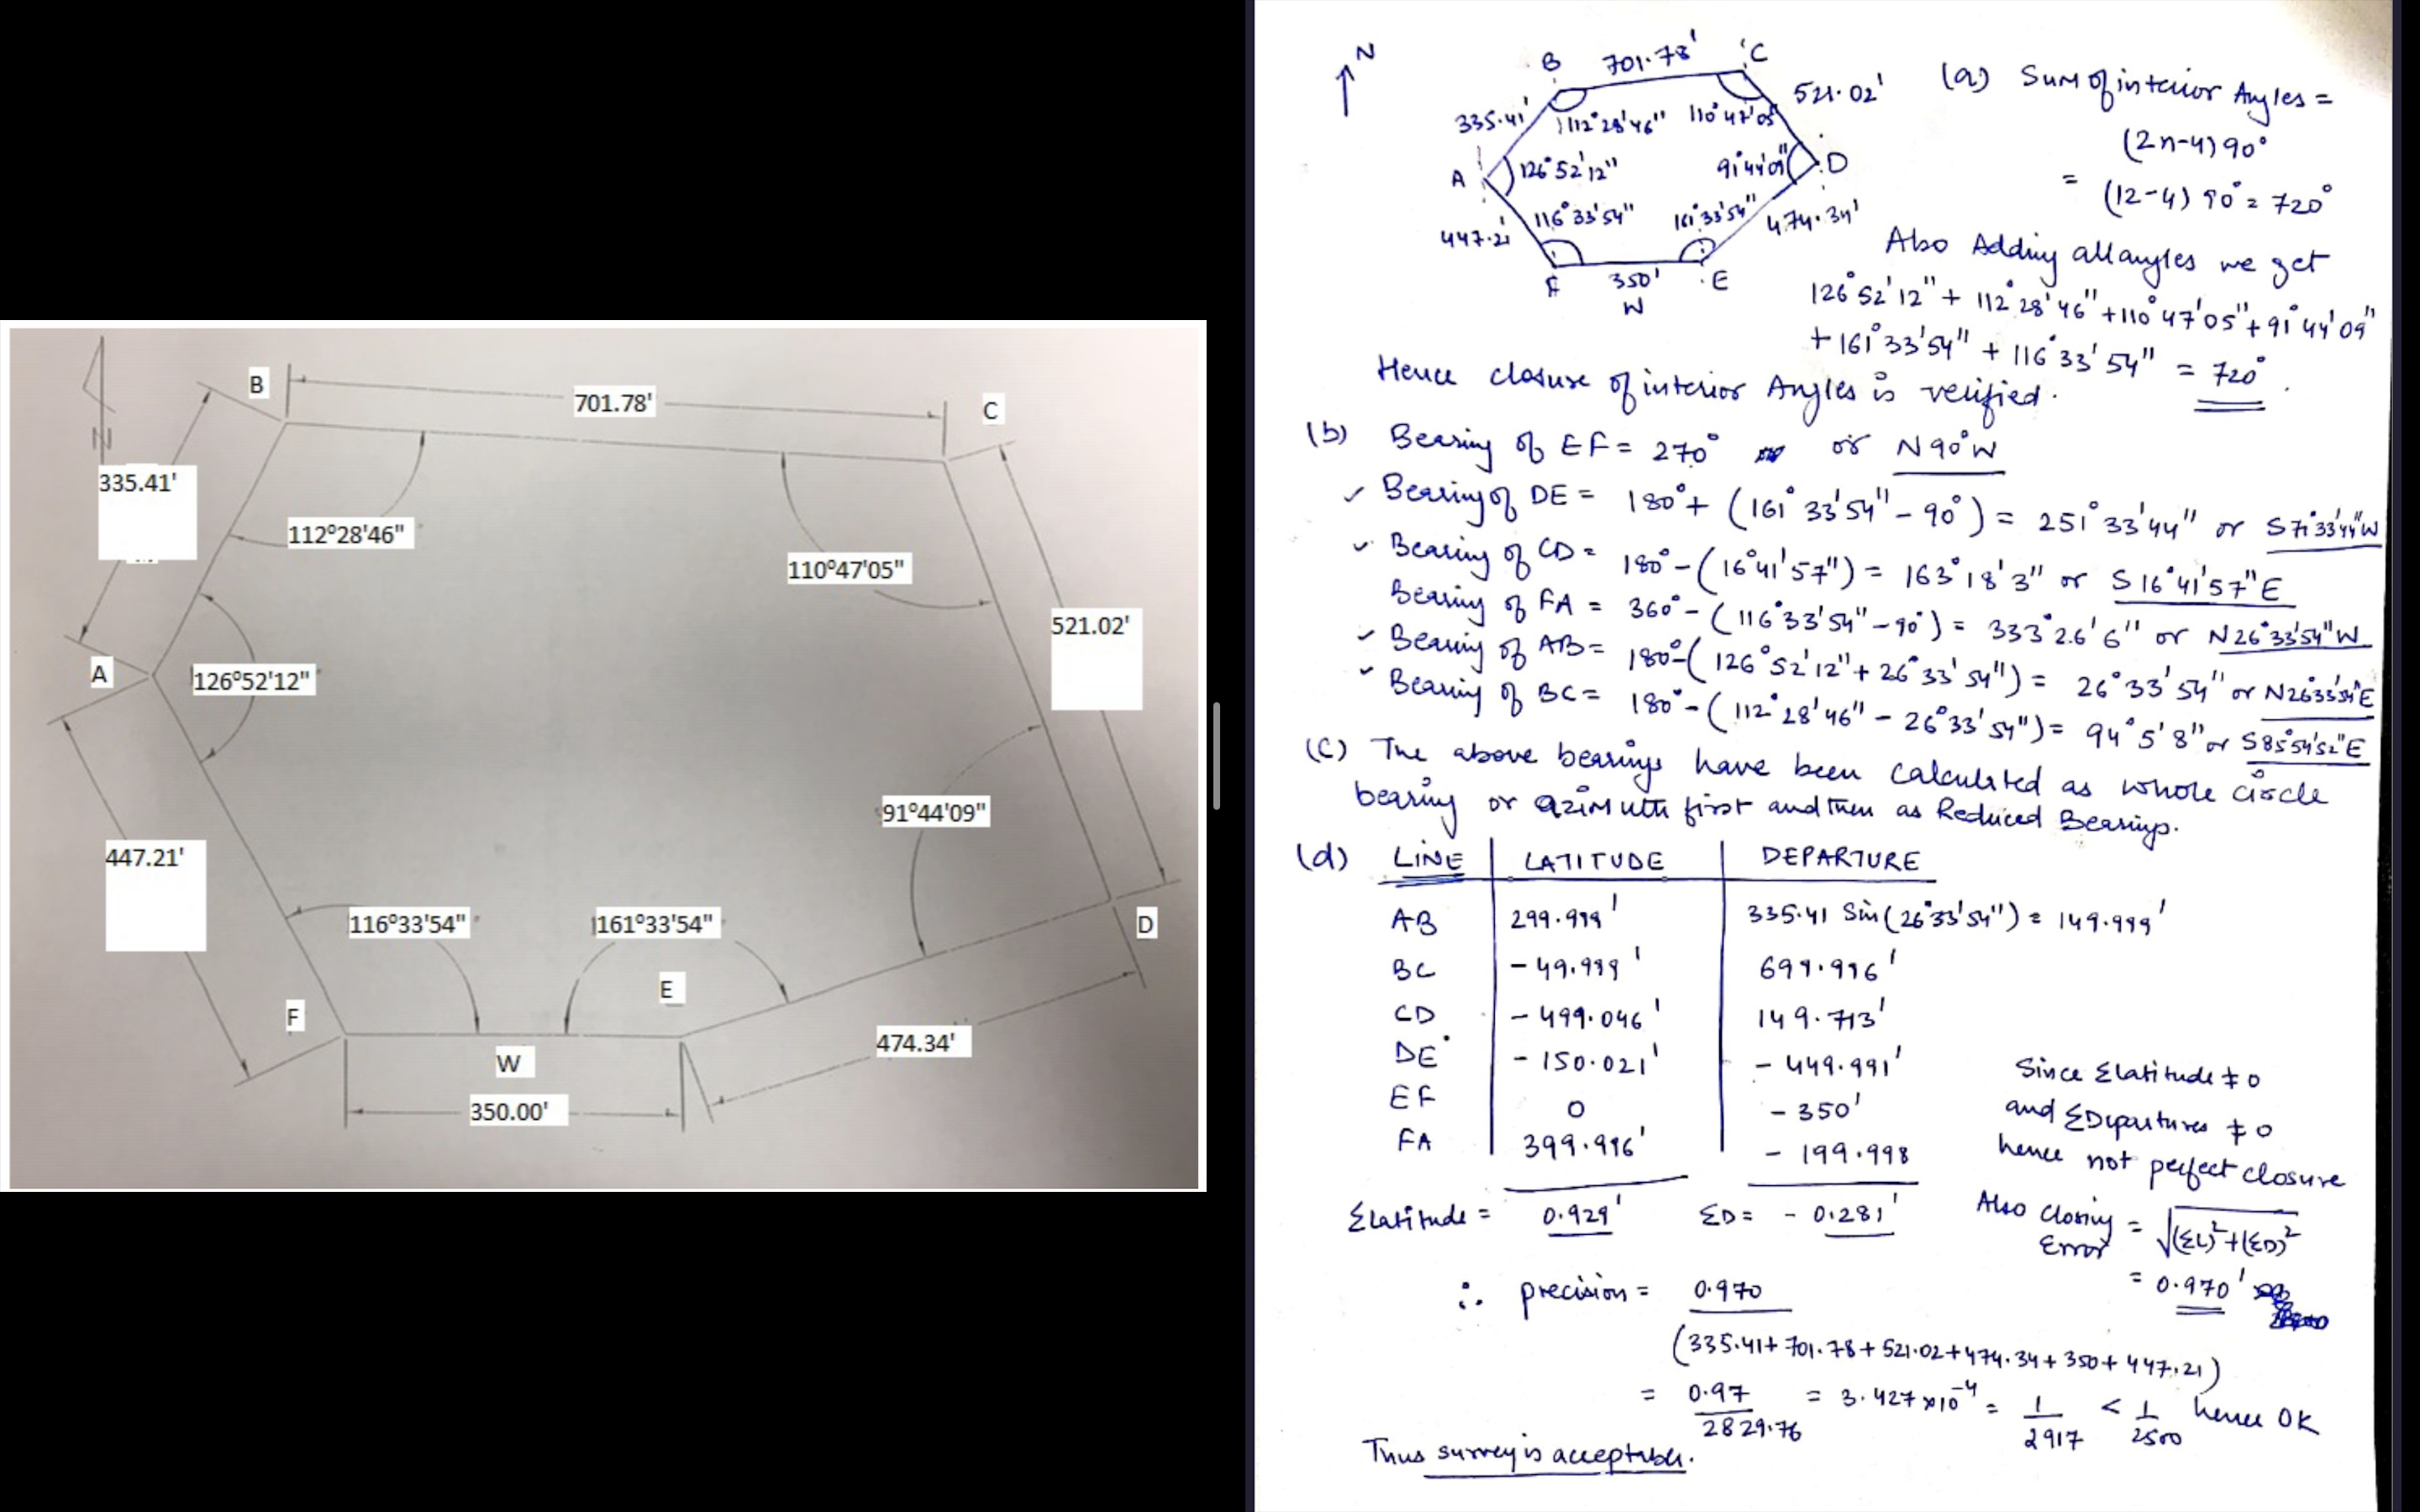 B
701.78'
C
N
335.41'
112°28'46"
110°47'05"
521.02'
A
126°52'12"
91°44'09"
447.21'
116°33'54"
161°33'54"
E
D
F
W
474.34'
350.00'
N
B 701.78' C
335.41' 521.02'
112°28'46" 110°47'05"
A 126°52'12" 91°44'09" D
116°33'54" 161°33'54"
447.21 474.34'
F 350' E
W
(a) Sum of interior Angles =
(2n-4) 90°
= (12-4) 90° = 720°
Also Adding all angles we get
126°52'12" + 112°28'46" + 110°47'05" + 91°44'09"
+ 161°33'54" + 116°33'54" = 720°.
Hence closure of interior Angles is verified.
(b) Bearing of EF = 270° or N90°W
✓ Bearing of DE = 180° + (161°33'54" - 90°) = 251°33'44" or S71°33'44"W
✓ Bearing of CD = 180° - (16°41'57") = 163°18'3" or S16°41'57"E
Bearing of FA = 360° - (116°33'54" - 90°) = 333°26'6" or N26°33'54"W
✓ Bearing of AB = 180° - (126°52'12" + 26°33'54") = 26°33'54" or N26°33'54"E
✓ Bearing of BC = 180° - (112°28'46" - 26°33'54") = 94°5'8" or S85°54'52"E
(C) The above bearings have been calculated as whole circle
bearing or azimuth first and then as Reduced Bearings.
(d) LINE LATITUDE DEPARTURE
AB 299.999' 335.41 Sin(26°33'54") = 149.999'
BC - 49.999' 699.996'
CD - 499.046' 149.713'
DE - 150.021' - 449.991'
EF 0 - 350'
FA 399.996' - 199.998
Σlatitude = 0.929' ΣD = - 0.281'
Since Σlatitude ≠ 0
and ΣDepartures ≠ 0
hence not perfect closure
Also Closing Error = √(ΣL)²+(ΣD)²
= 0.970'
∴ precision = 0.970
(335.41+701.78+521.02+474.34+350+447.21)
= 0.97 / 2829.76 = 3.427×10⁻⁴ = 1/2917 < 1/2500 hence OK
Thus survey is acceptable.